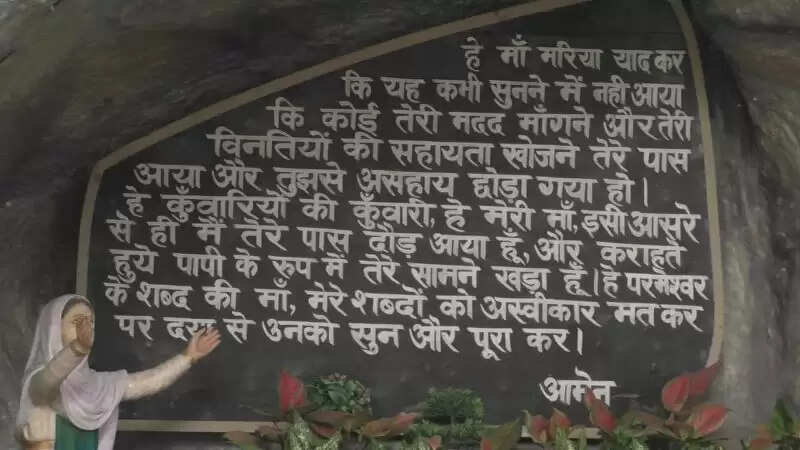 हे माँ मरिया याद कर
कि यह कभी सुनने में नही आया
कि कोई तेरी मदद माँगने और तेरी
विनतियों की सहायता खोजने तेरे पास
आया और तुझसे असहाय छोड़ा गया हो।
हे कुँवारियों की कुँवारी, हे मेरी माँ, इसी आसरे
से ही मैं तेरे पास दौड़ आया हूँ, और कराहते
हुये पापी के रुप में तेरे सामने खड़ा हूँ। हे परमेश्वर
के शब्द की माँ, मेरे शब्दों को अस्वीकार मत कर
पर दया से उनको सुन और पूरा कर।
आमेन